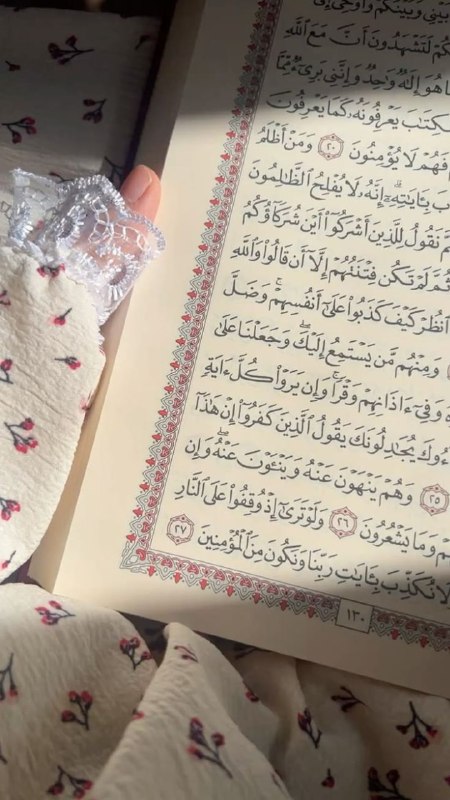 بَيْنِي وَبَيْنَكُمْ وَأُوحِيَ إِلَىَّ
لَتَشْهَدُونَ أَنَّ مَعَ ٱللَّهِ
هُوَ إِلَٰهٌ وَٰحِدٌ وَإِنَّنِى بَرِىٓءٌ مِّمَّا
يَعْرِفُونَهُۥ كَمَا يَعْرِفُونَ
فَهُمْ لَا يُؤْمِنُونَ ٢٠ وَمَنْ أَظْلَمُ
بِـَٔايَٰتِهِۦٓ إِنَّهُۥ لَا يُفْلِحُ ٱلظَّٰلِمُونَ
نَقُولُ لِلَّذِينَ أَشْرَكُوٓا۟ أَيْنَ شُرَكَآؤُكُمُ
ثُمَّ لَمْ تَكُن فِتْنَتُهُمْ إِلَّآ أَن قَالُوا۟ وَٱللَّهِ
ٱنظُرْ كَيْفَ كَذَبُوا۟ عَلَىٰٓ أَنفُسِهِمْ ۚ وَضَلَّ
وَمِنْهُم مَّن يَسْتَمِعُ إِلَيْكَ ۖ وَجَعَلْنَا عَلَىٰ
وَفِىٓ ءَاذَانِهِمْ وَقْرًا ۚ وَإِن يَرَوْا۟ كُلَّ ءَايَةٍ
يُجَٰدِلُونَكَ يَقُولُ ٱلَّذِينَ كَفَرُوٓا۟ إِنْ هَٰذَآ
٢٥ وَهُمْ يَنْهَوْنَ عَنْهُ وَيَنْـَٔوْنَ عَنْهُ ۖ وَإِن
وَمَا يَشْعُرُونَ ٢٦ وَلَوْ تَرَىٰٓ إِذْ وُقِفُوا۟ عَلَى ٱلنَّارِ
نُكَذِّبَ بِـَٔايَٰتِ رَبِّنَا وَنَكُونَ مِنَ ٱلْمُؤْمِنِينَ ٢٧
١٣٠